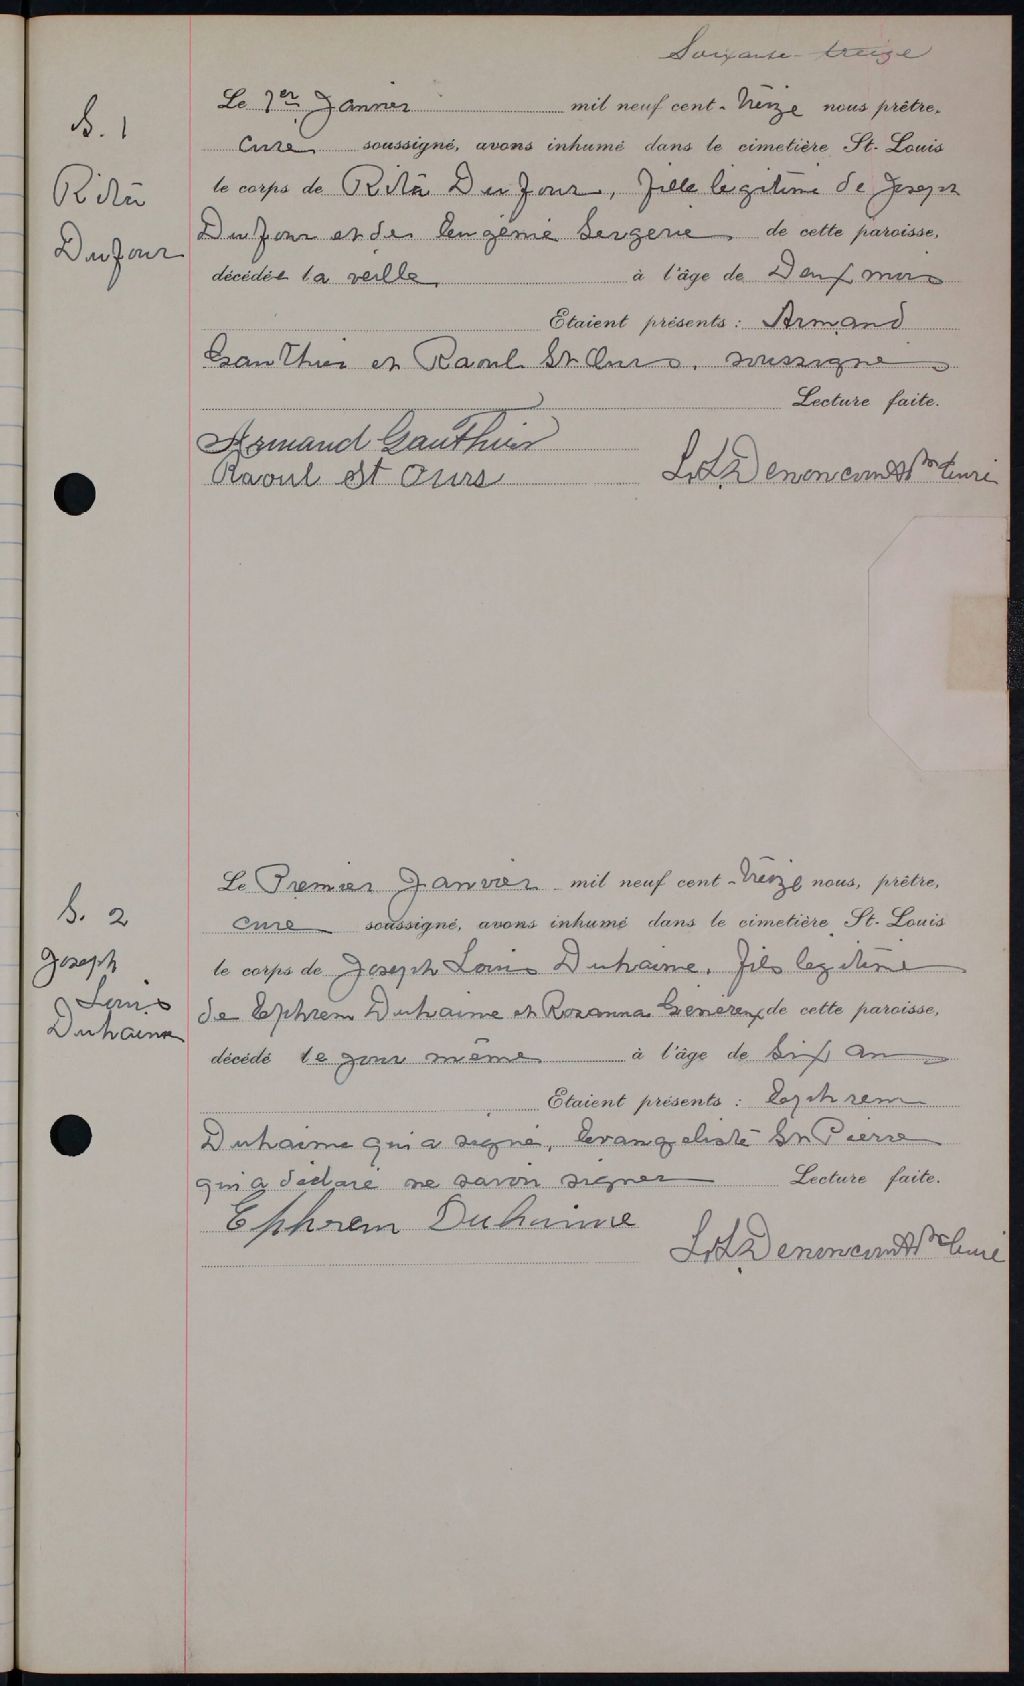 Soixante-treize
S. 1
Rita
Dufour
Le 1er Janvier mil neuf cent-treize nous prêtre,
curé soussigné, avons inhumé dans le cimetière St-Louis
le corps de Rita Dufour, fille légitime de Joseph
Dufour et de Eugénie Sergerie de cette paroisse,
décédée la veille à l'âge de Deux mois
Etaient présents : Armand
Gauthier et Raoul St Ours, soussignés
Lecture faite.
Armand Gauthier
Raoul St Ours
L.L. Denoncourt Ptre Curé
S. 2
Joseph
Louis
Duhaime
Le Premier Janvier mil neuf cent-treize nous, prêtre,
curé soussigné, avons inhumé dans le cimetière St-Louis
le corps de Joseph Louis Duhaime, fils légitime
de Ephrem Duhaime et Rosanna Généreux de cette paroisse,
décédé le jour même à l'âge de Six ans
Etaient présents : Ephrem
Duhaime qui a signé, Evangeliste St Pierre
qui a déclaré ne savoir signer Lecture faite.
Ephrem Duhaime
L.L. Denoncourt Ptre Curé